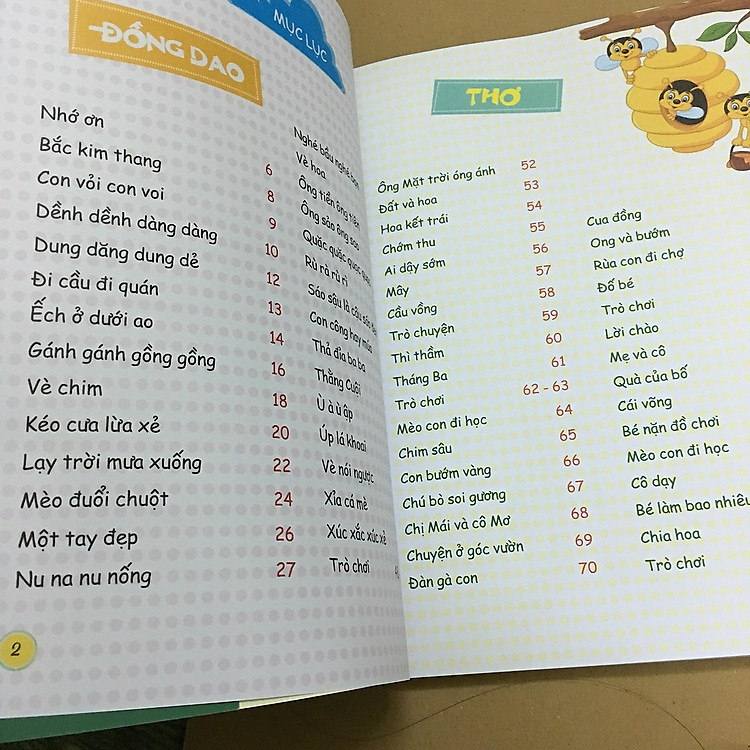 MỤC LỤC
ĐỒNG DAO
Nhớ ơn 6
Bắc kim thang 8
Con vỏi con voi 9
Dềnh dềnh dàng dàng 10
Dung dăng dung dẻ 12
Đi cầu đi quán 13
Ếch ở dưới ao 14
Gánh gánh gồng gồng 16
Vè chim 18
Kéo cưa lừa xẻ 20
Lạy trời mưa xuống 22
Mèo đuổi chuột 24
Một tay đẹp 26
Nu na nu nống 27
Nghé bầu nghé
Vè hoa
Ông tiển ông tiên
Ông sảo ông sao
Quặc quặc quạc
Rù rà rù rì
Sáo sậu là cậu
Con công hay múa
Thả đỉa ba ba
Thằng Cuội
Ù à ù ập
Úp lá khoai
Vè nói ngược
Xỉa cá mè
Xúc xắc xúc xẻ
Trò chơi
2
THƠ
Ông Mặt trời óng ánh 52
Đất và hoa 53
Hoa kết trái 54
Chớm thu 55
Ai dậy sớm 56
Mây 57
Cầu vồng 58
Trò chuyện 59
Thì thầm 60
Tháng Ba 61
Trò chơi 62 - 63
Mèo con đi học 64
Chim sâu 65
Con bướm vàng 66
Chú bò soi gương 67
Chị Mái và cô Mơ 68
Chuyện ở góc vườn 69
Đàn gà con 70
Cua đồng
Ong và bướm
Rùa con đi chợ
Đố bé
Trò chơi
Lời chào
Mẹ và cô
Quà của bố
Cái võng
Bé nặn đồ chơi
Mèo con đi học
Cô dạy
Bé làm bao nhiêu
Chia hoa
Trò chơi